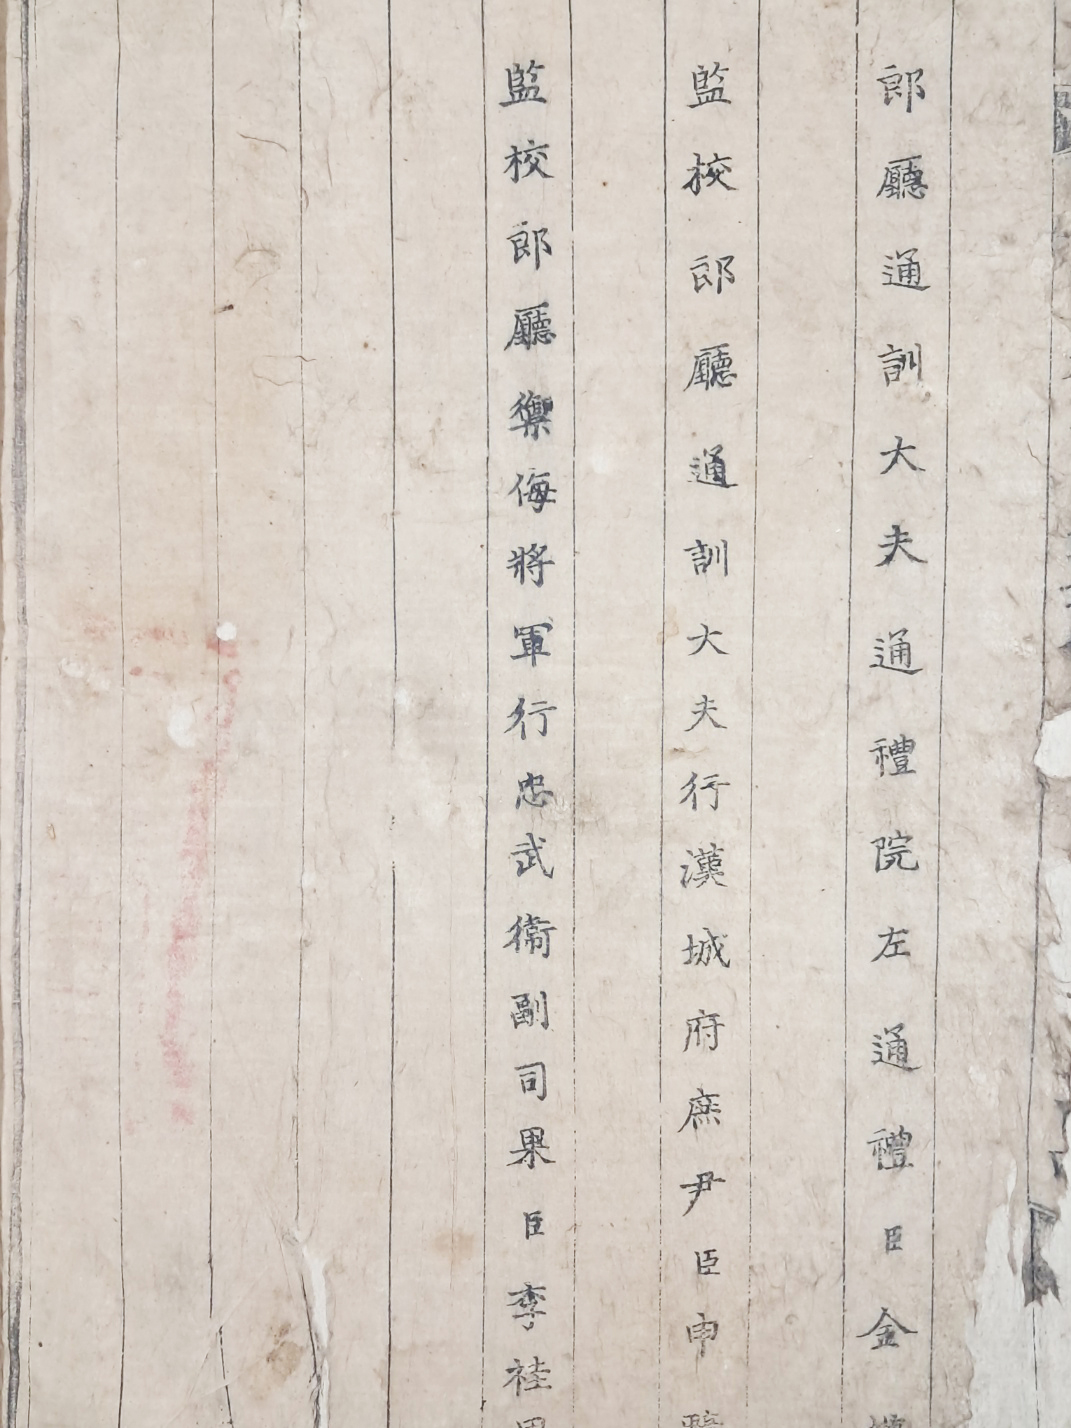 郎廳通訓大夫通禮院左通禮臣金
監校郎廳通訓大夫行漢城府庶尹臣申
監校郎廳禦侮將軍行忠武衛副司果臣李